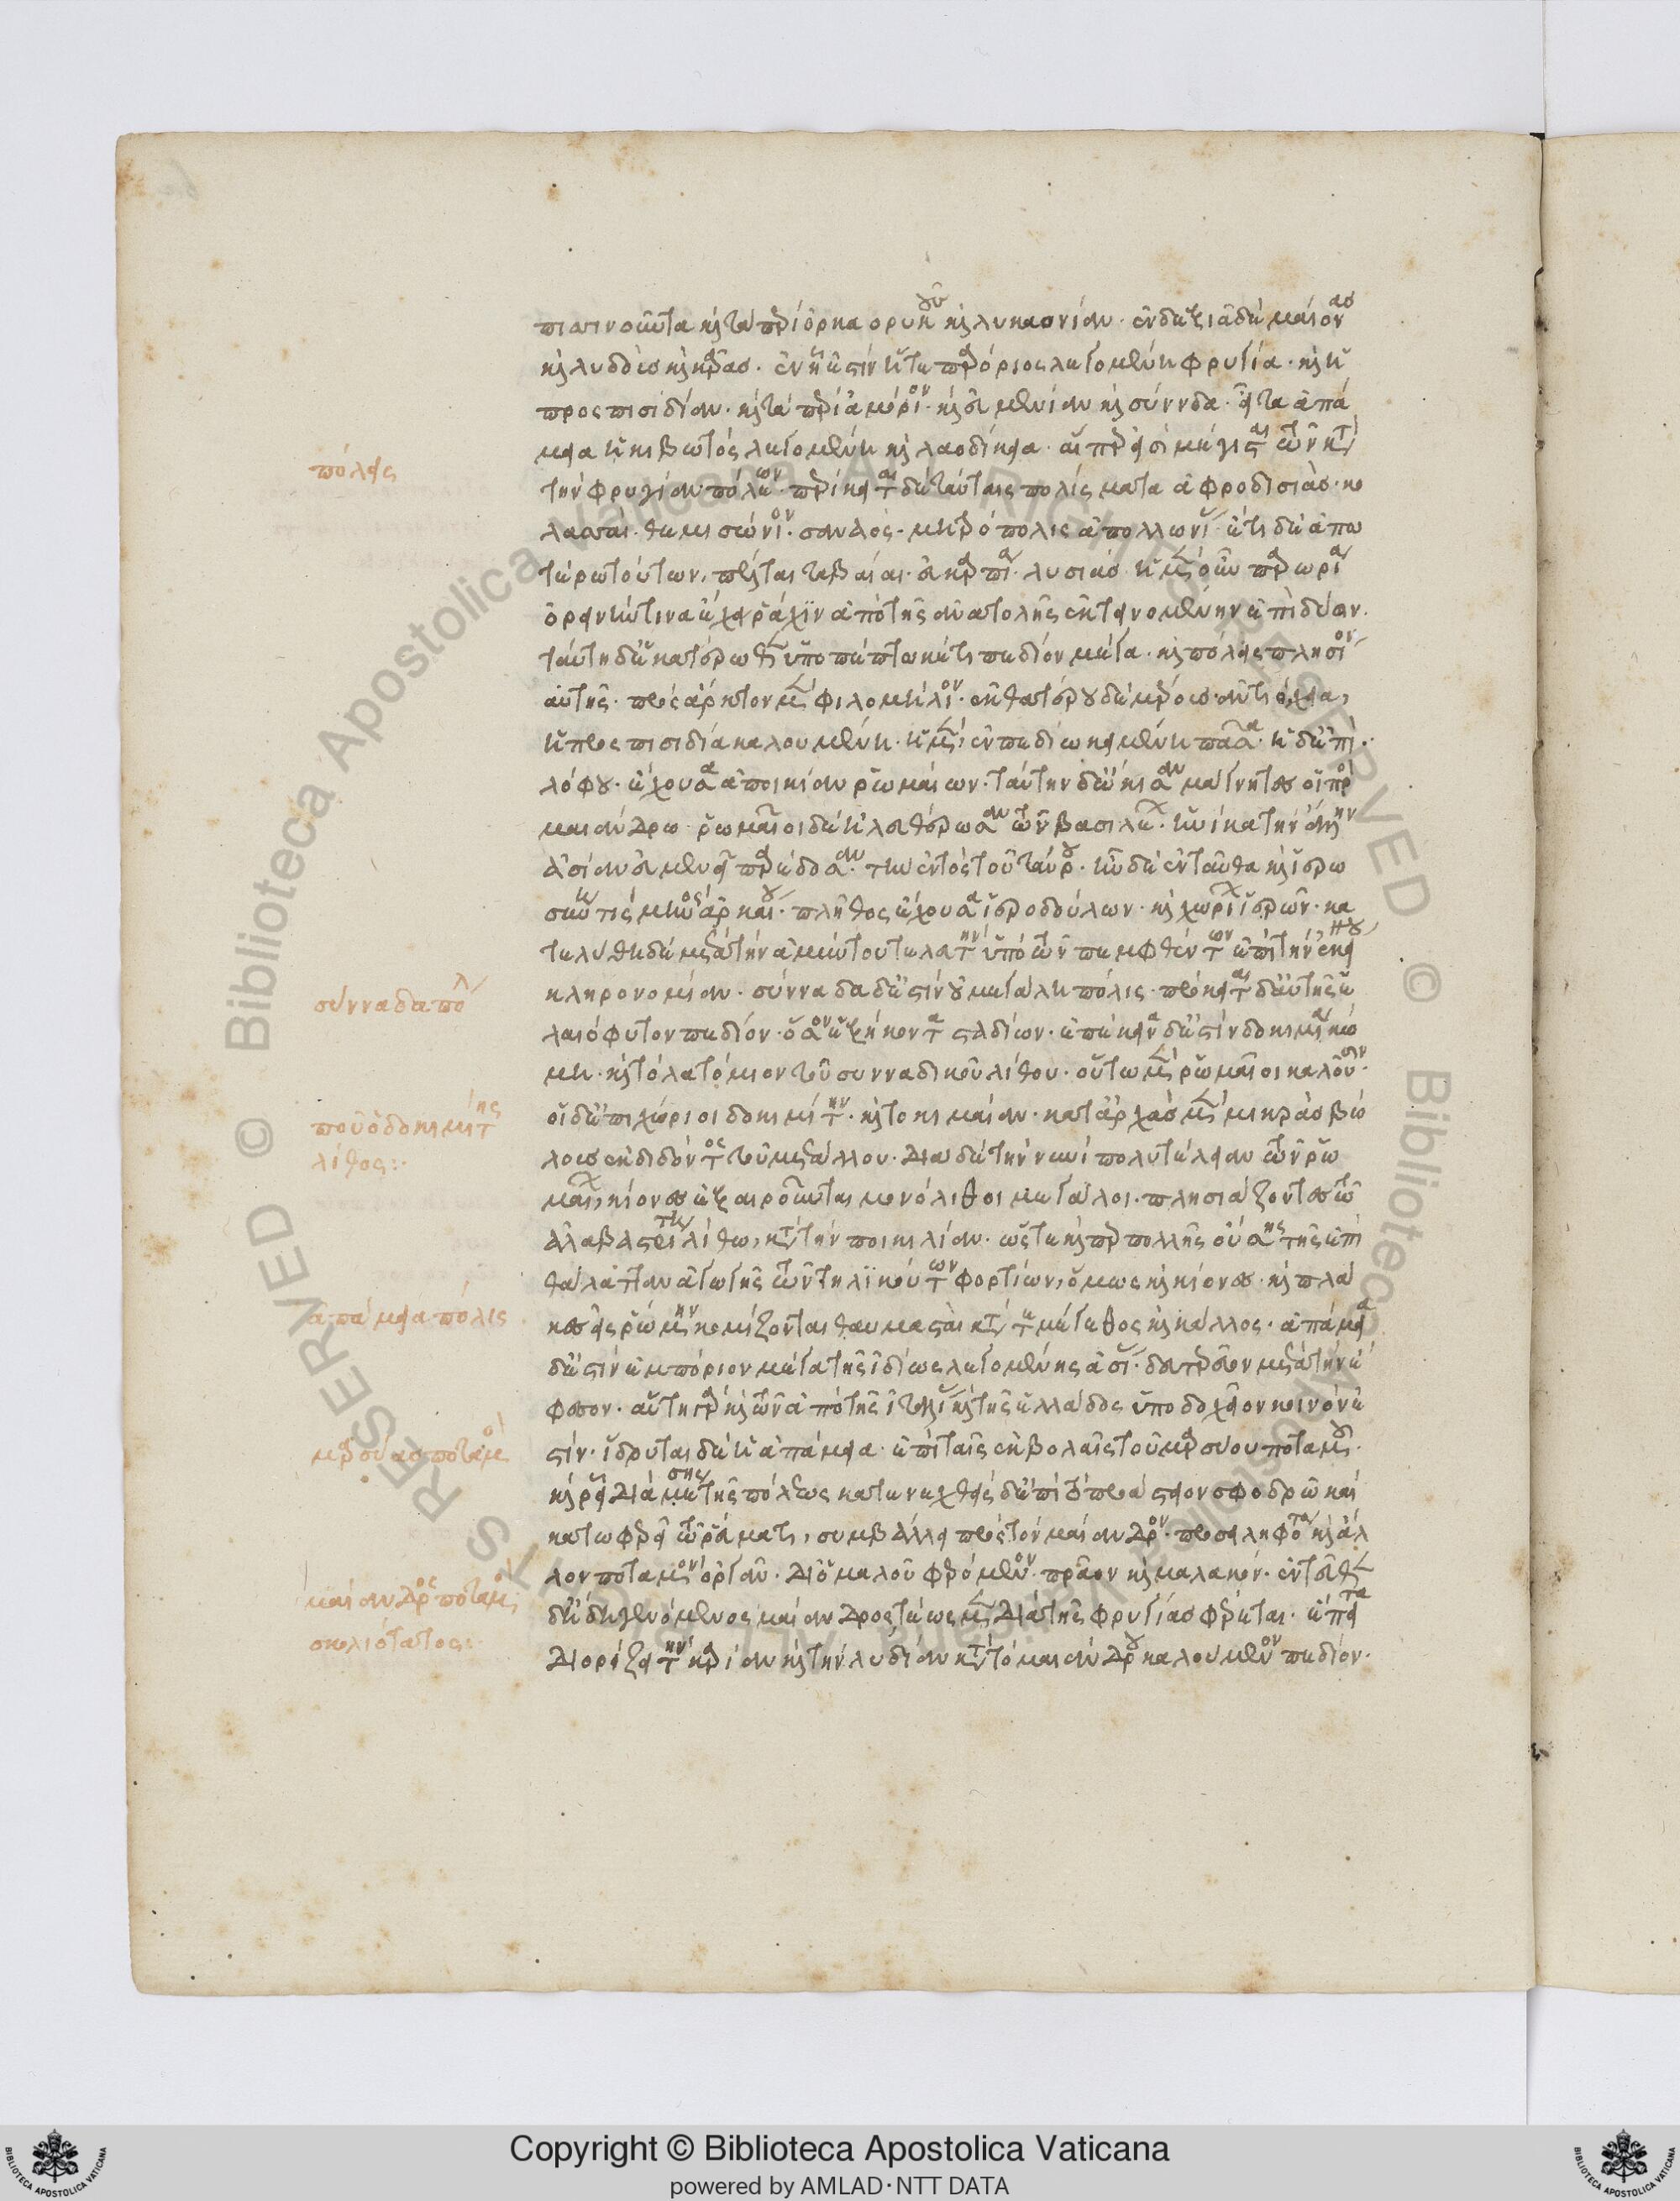 πεσσινοῦντα καὶ τὰ περὶ ὀρκαορύκους καὶ λυκαονίαν· ἐν δεξιᾷ δὲ μαίονας
καὶ λυδοὺς καὶ κᾶρας· ἐν ᾗ ἐστιν ἥ τε παρόρειος λεγομένη φρυγία· καὶ ἡ
πρὸς πισιδίαν· καὶ τὰ περὶ ἀμόριον· καὶ εὐμενίαν καὶ σύνναδα· εἶτα ἀπά
μεια ἡ κιβωτὸς λεγομένη καὶ λαοδίκεια· αἵπερ εἰσὶ μέγισται τῶν κατὰ
πόλεις
τὴν φρυγίαν πόλεων· περίκειται δὲ ταύταις πολίσματα ἀφροδισιὰς· κο
λασσαί· θεμισώνιον· σαναὸς· μητρόπολις ἀπολλωνιάς· ἔτι δὲ ἀπω
τέρω τούτων, πέλται ταβαίαι· εὐκαρπία· λυσιάς· ἡ μὲν οὖν παρωρεία
ὀρεινήν τινα ἔχει ῥάχιν ἀπὸ τῆς ἀνατολῆς ἐκτεινομένην ἐπὶ δύσιν·
ταύτῃ δ' ἑκατέρωθεν ὑποπέπτωκέ τι πεδίον μέγα· καὶ πόλεις πλησίον
αὐτῆς· πρὸς ἄρκτον μὲν φιλομήλιον· ἐκ θατέρου δὲ μέρους ἀντιόχεια,
ἡ πρὸς πισιδίᾳ καλουμένη· ἡ μὲν ἐν πεδίῳ κειμένη πᾶσα· ἡ δ' ἐπὶ
λόφου· ἔχουσα ἀποικίαν ῥωμαίων· ταύτην δ' ᾤκισαν μάγνητες οἱ πρὸς
μαιάνδρῳ· ῥωμαῖοι δὲ ἠλευθέρωσαν τῶν βασιλέων· ἡνίκα τὴν ἄλλην
ἀσίαν εὐμένει παρέδοσαν· τὴν ἐντὸς τοῦ ταύρου· ἦν δὲ ἐνταῦθα καὶ ἱερω
σύνη τις μηνὸς ἀρκαίου· πλῆθος ἔχουσα ἱεροδούλων· καὶ χωρίων ἱερῶν· κα
τελύθη δὲ μετὰ τὴν ἀμύντου τελευτὴν ὑπὸ τῶν πεμφθέντων ἐπὶ τὴν ἐκείνου
κληρονομίαν· σύνναδα δ' ἐστὶν οὐ μεγάλη πόλις· πρόκειται δ' αὐτῆς ἐ
συνναδα πόλις
λαιόφυτον πεδίον· ὅσον ἑξήκοντα σταδίων· ἐπέκεινα δ' ἐστὶν δοκιμία κώ
μη· καὶ τὸ λατόμιον τοῦ συνναδικοῦ λίθου· οὕτω μὲν ῥωμαῖοι καλοῦσιν·
οἱ δ' ἐπιχώριοι δοκιμίτην· καὶ δοκιμαῖον· κατ' ἀρχὰς μὲν μικρὰς βώ
ποῦ ὁ δοκιμίτης
λίθος:·
λους ἐκδιδόντος τοῦ μετάλλου· διὰ δὲ τὴν νυνὶ πολυτέλειαν τῶν ῥω
μαίων, κίονες ἐξαιροῦνται μονόλιθοι μεγάλοι· πλησιάζοντες τῷ
ἀλαβαστρίτῃ λίθῳ, κατὰ τὴν ποικιλίαν· ὥστε καίπερ πολλῆς οὔσης τῆς ἐπὶ
θάλατταν ἀγωγῆς τῶν τηλικούτων φορτίων, ὅμως καὶ κίονες· καὶ πλά
κες εἰς ῥώμην κομίζονται θαυμασταὶ κατὰ τὸ μέγεθος καὶ κάλλος· ἀπάμεια
ἀπάμεια πόλις
δ' ἐστὶν ἐμπόριον μέγα τῆς ἰδίως λεγομένης ἀσίας· δευτερεῦον μετὰ τὴν ἔ
φεσον· αὕτη γὰρ καὶ τῶν ἀπὸ τῆς ἰταλίας καὶ τῆς ἑλλάδος ὑποδοχεῖον κοινόν ἐ
στίν· ἵδρυται δὲ ἡ ἀπάμεια· ἐπὶ ταῖς ἐκβολαῖς τοῦ μαρσύου ποταμοῦ·
μαρσύας ποταμὸς
καὶ ῥεῖ διὰ μέσης τῆς πόλεως· κατενεχθεὶς δ' ἐπὶ τὸ προάστειον σφοδρῷ καὶ
κατωφερεῖ τῷ ῥεύματι, συμβάλλει πρὸς τὸν μαίανδρον· προσειληφότα καὶ ἄλ
λον ποταμὸν ὀργᾶν· δι' ὁμαλοῦ φερόμενον· πρᾶον καὶ μαλακόν· ἐντεῦθεν
μαίανδρος ποταμὸς
δ' ἤδη γενόμενος μαίανδρος, τέως μὲν διὰ τῆς φρυγίας φέρεται· ἔπειτα
σκολιότατος:·
διορίζει τὴν καρίαν καὶ τὴν λυδίαν κατὰ τὸ μαιάνδρου καλούμενον πεδίον·